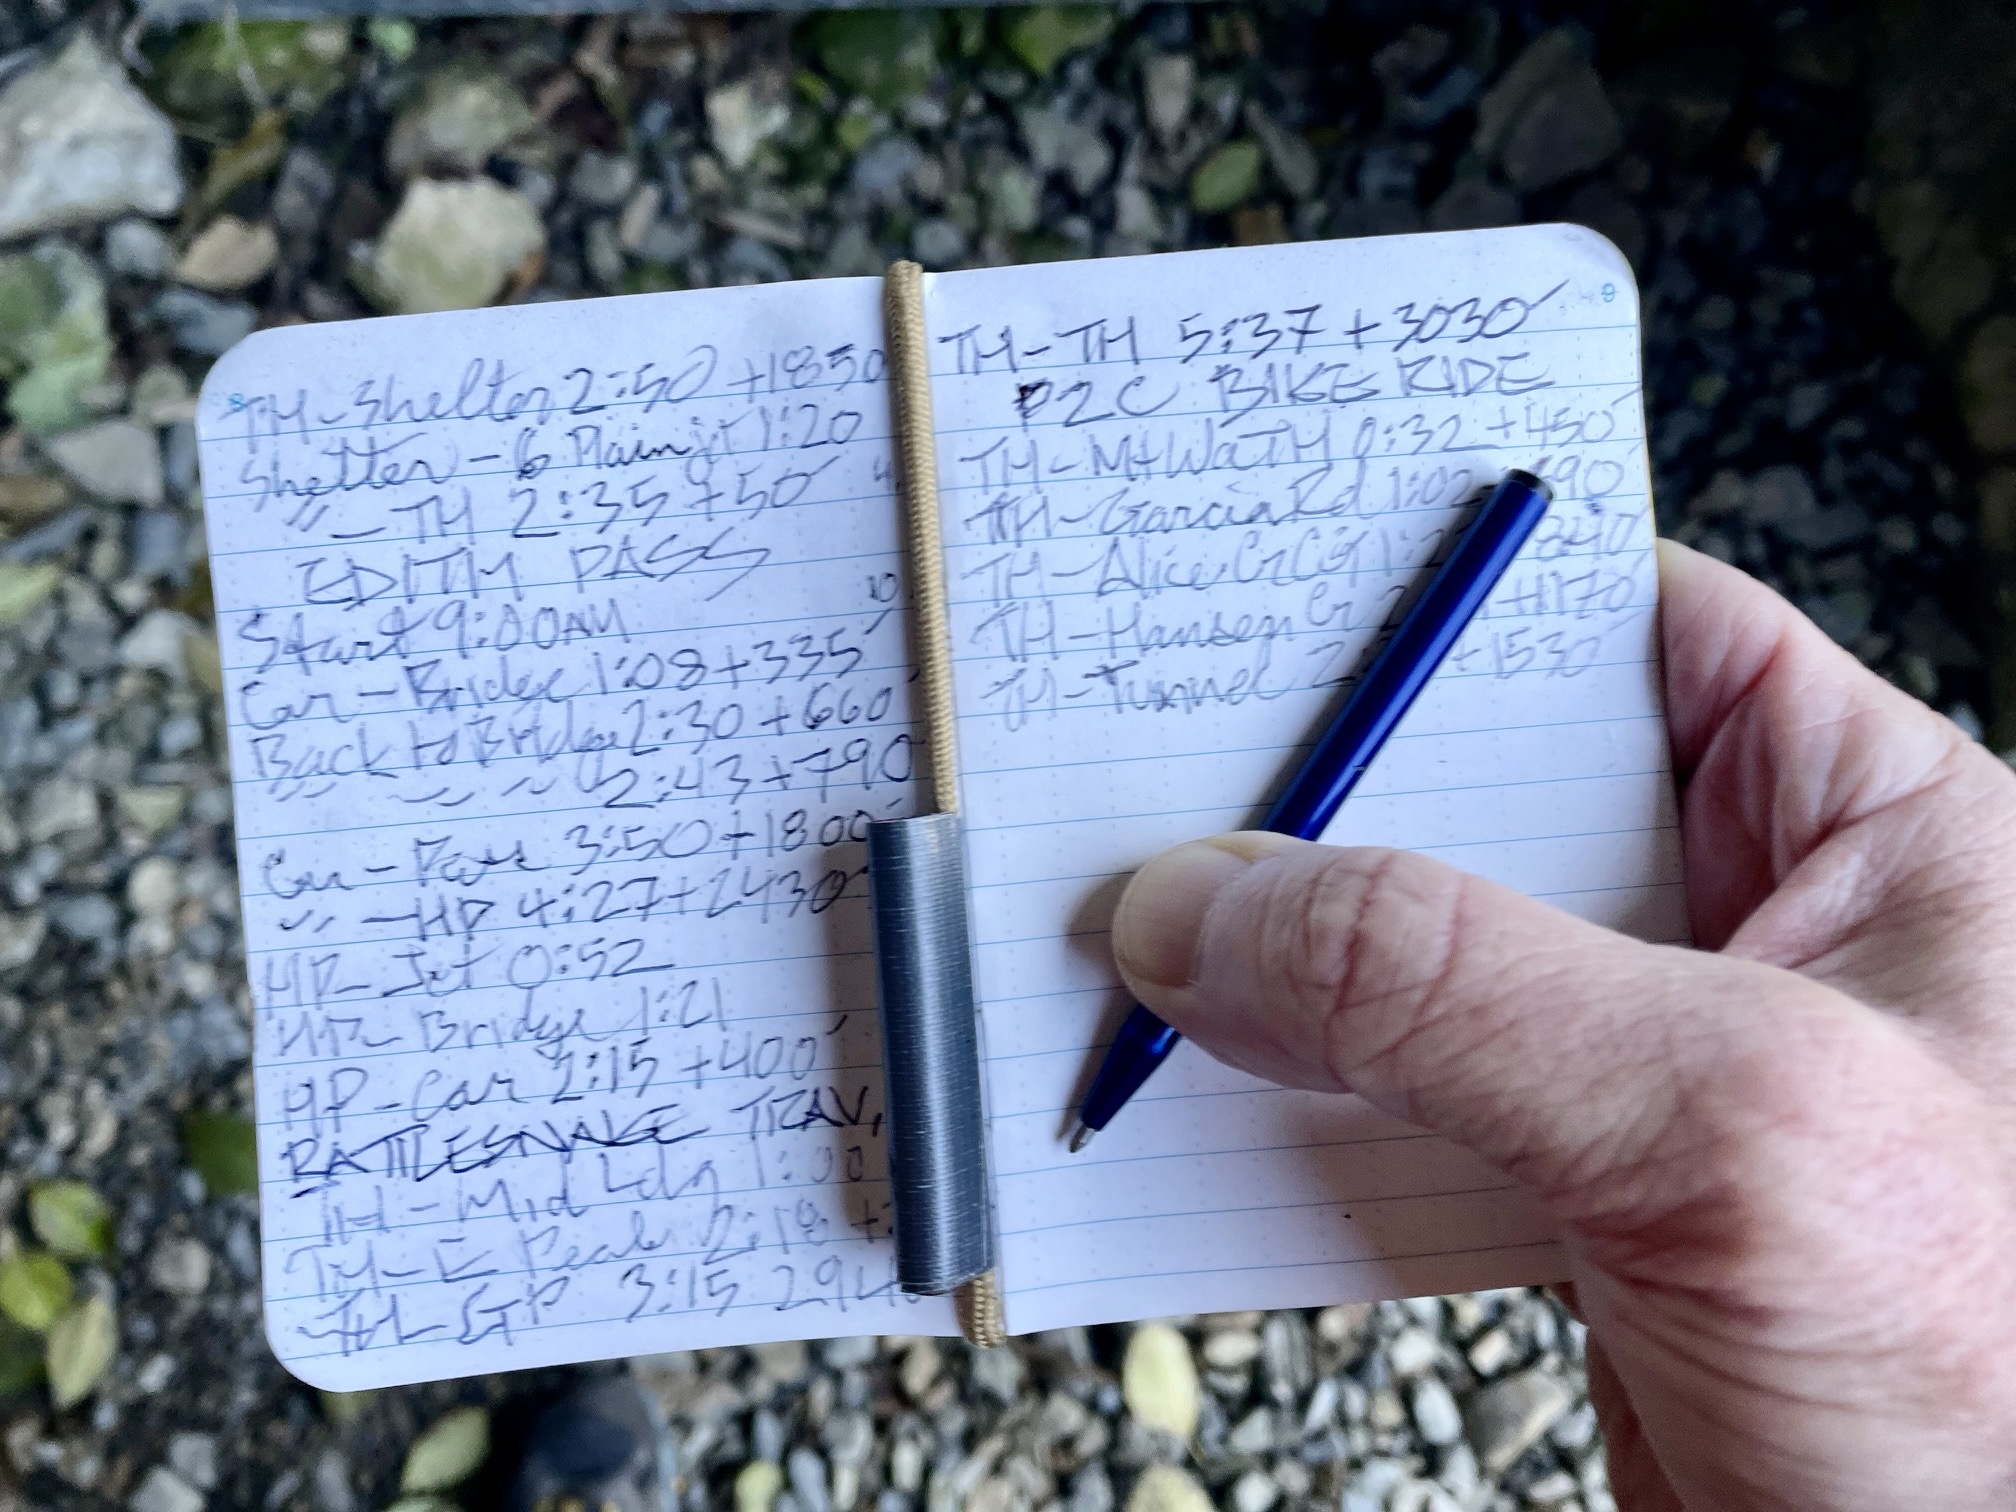 8
TH-Shelter 2:50 +1850
Shelter - 6 Plain jt 1:20
" - TH 2:35 +50'
EDITH PASS
Start 9:00AM
Car - Bridge 1:08 +335'
Back to Bridge 2:30 +660'
" " " 2:43 +790'
Car - Pass 3:50 +1800'
" - HP 4:27 +2430'
HP - Jct 0:52
HP - Bridge 1:21
HP - Car 2:15 +400'
RATTLESNAKE TRAV.
TH - Mid Ldg 1:00
TH - E Peak 2:18 +
TH - GP 3:15 294
9
TH-TH 5:37 +3030'
P2C BIKE RIDE
TH - Mt Wa TH 0:32 +450'
TH - Garcia Rd 1:02 90'
TH - Alice Cr 1: 840'
TH - Hansen Cr 2 +1170'
TH - Tunnel 2 +1530'